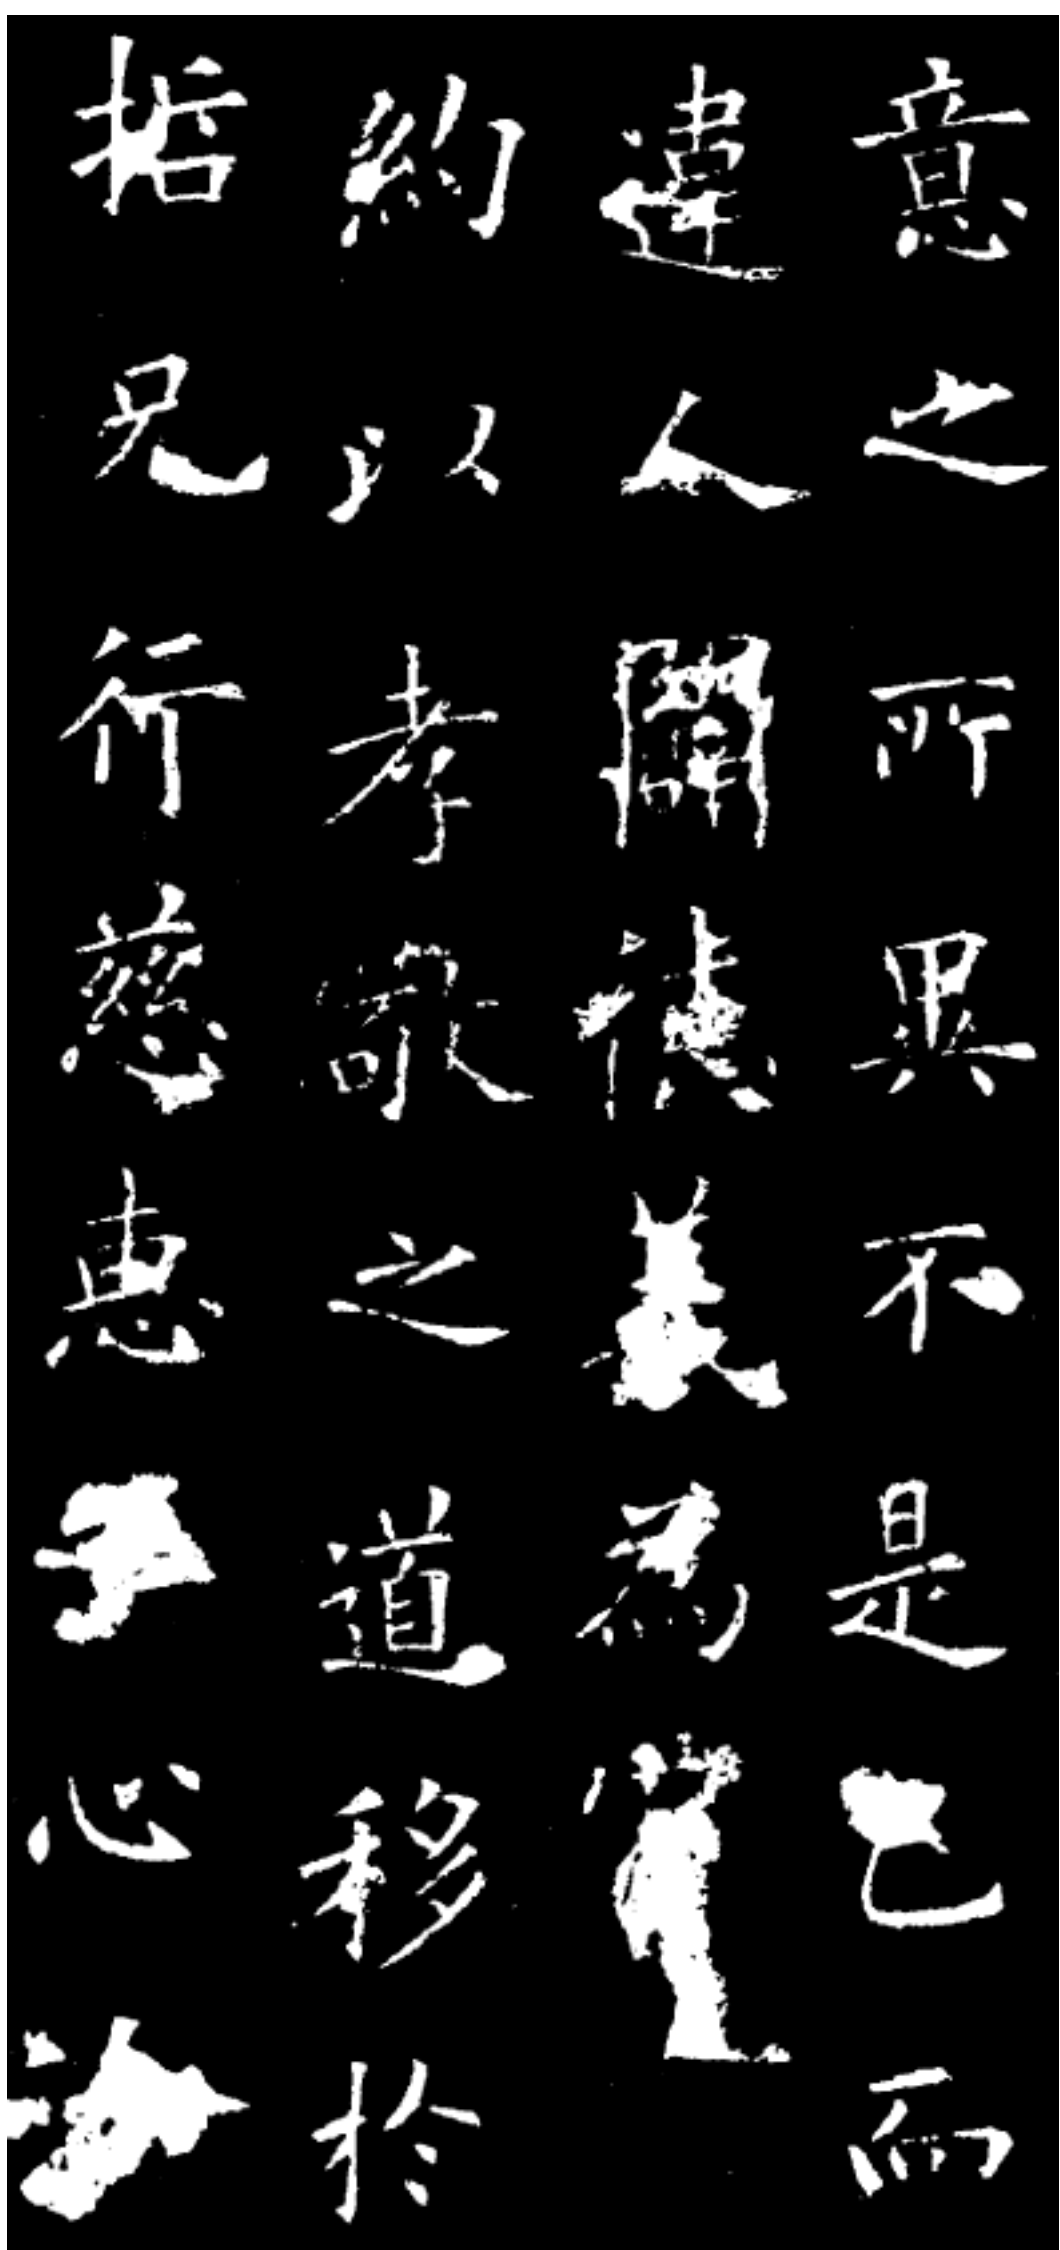 意之所異不是已而
違人闡德義為
約以孝敬之道移於
哲兄行慈惠于心